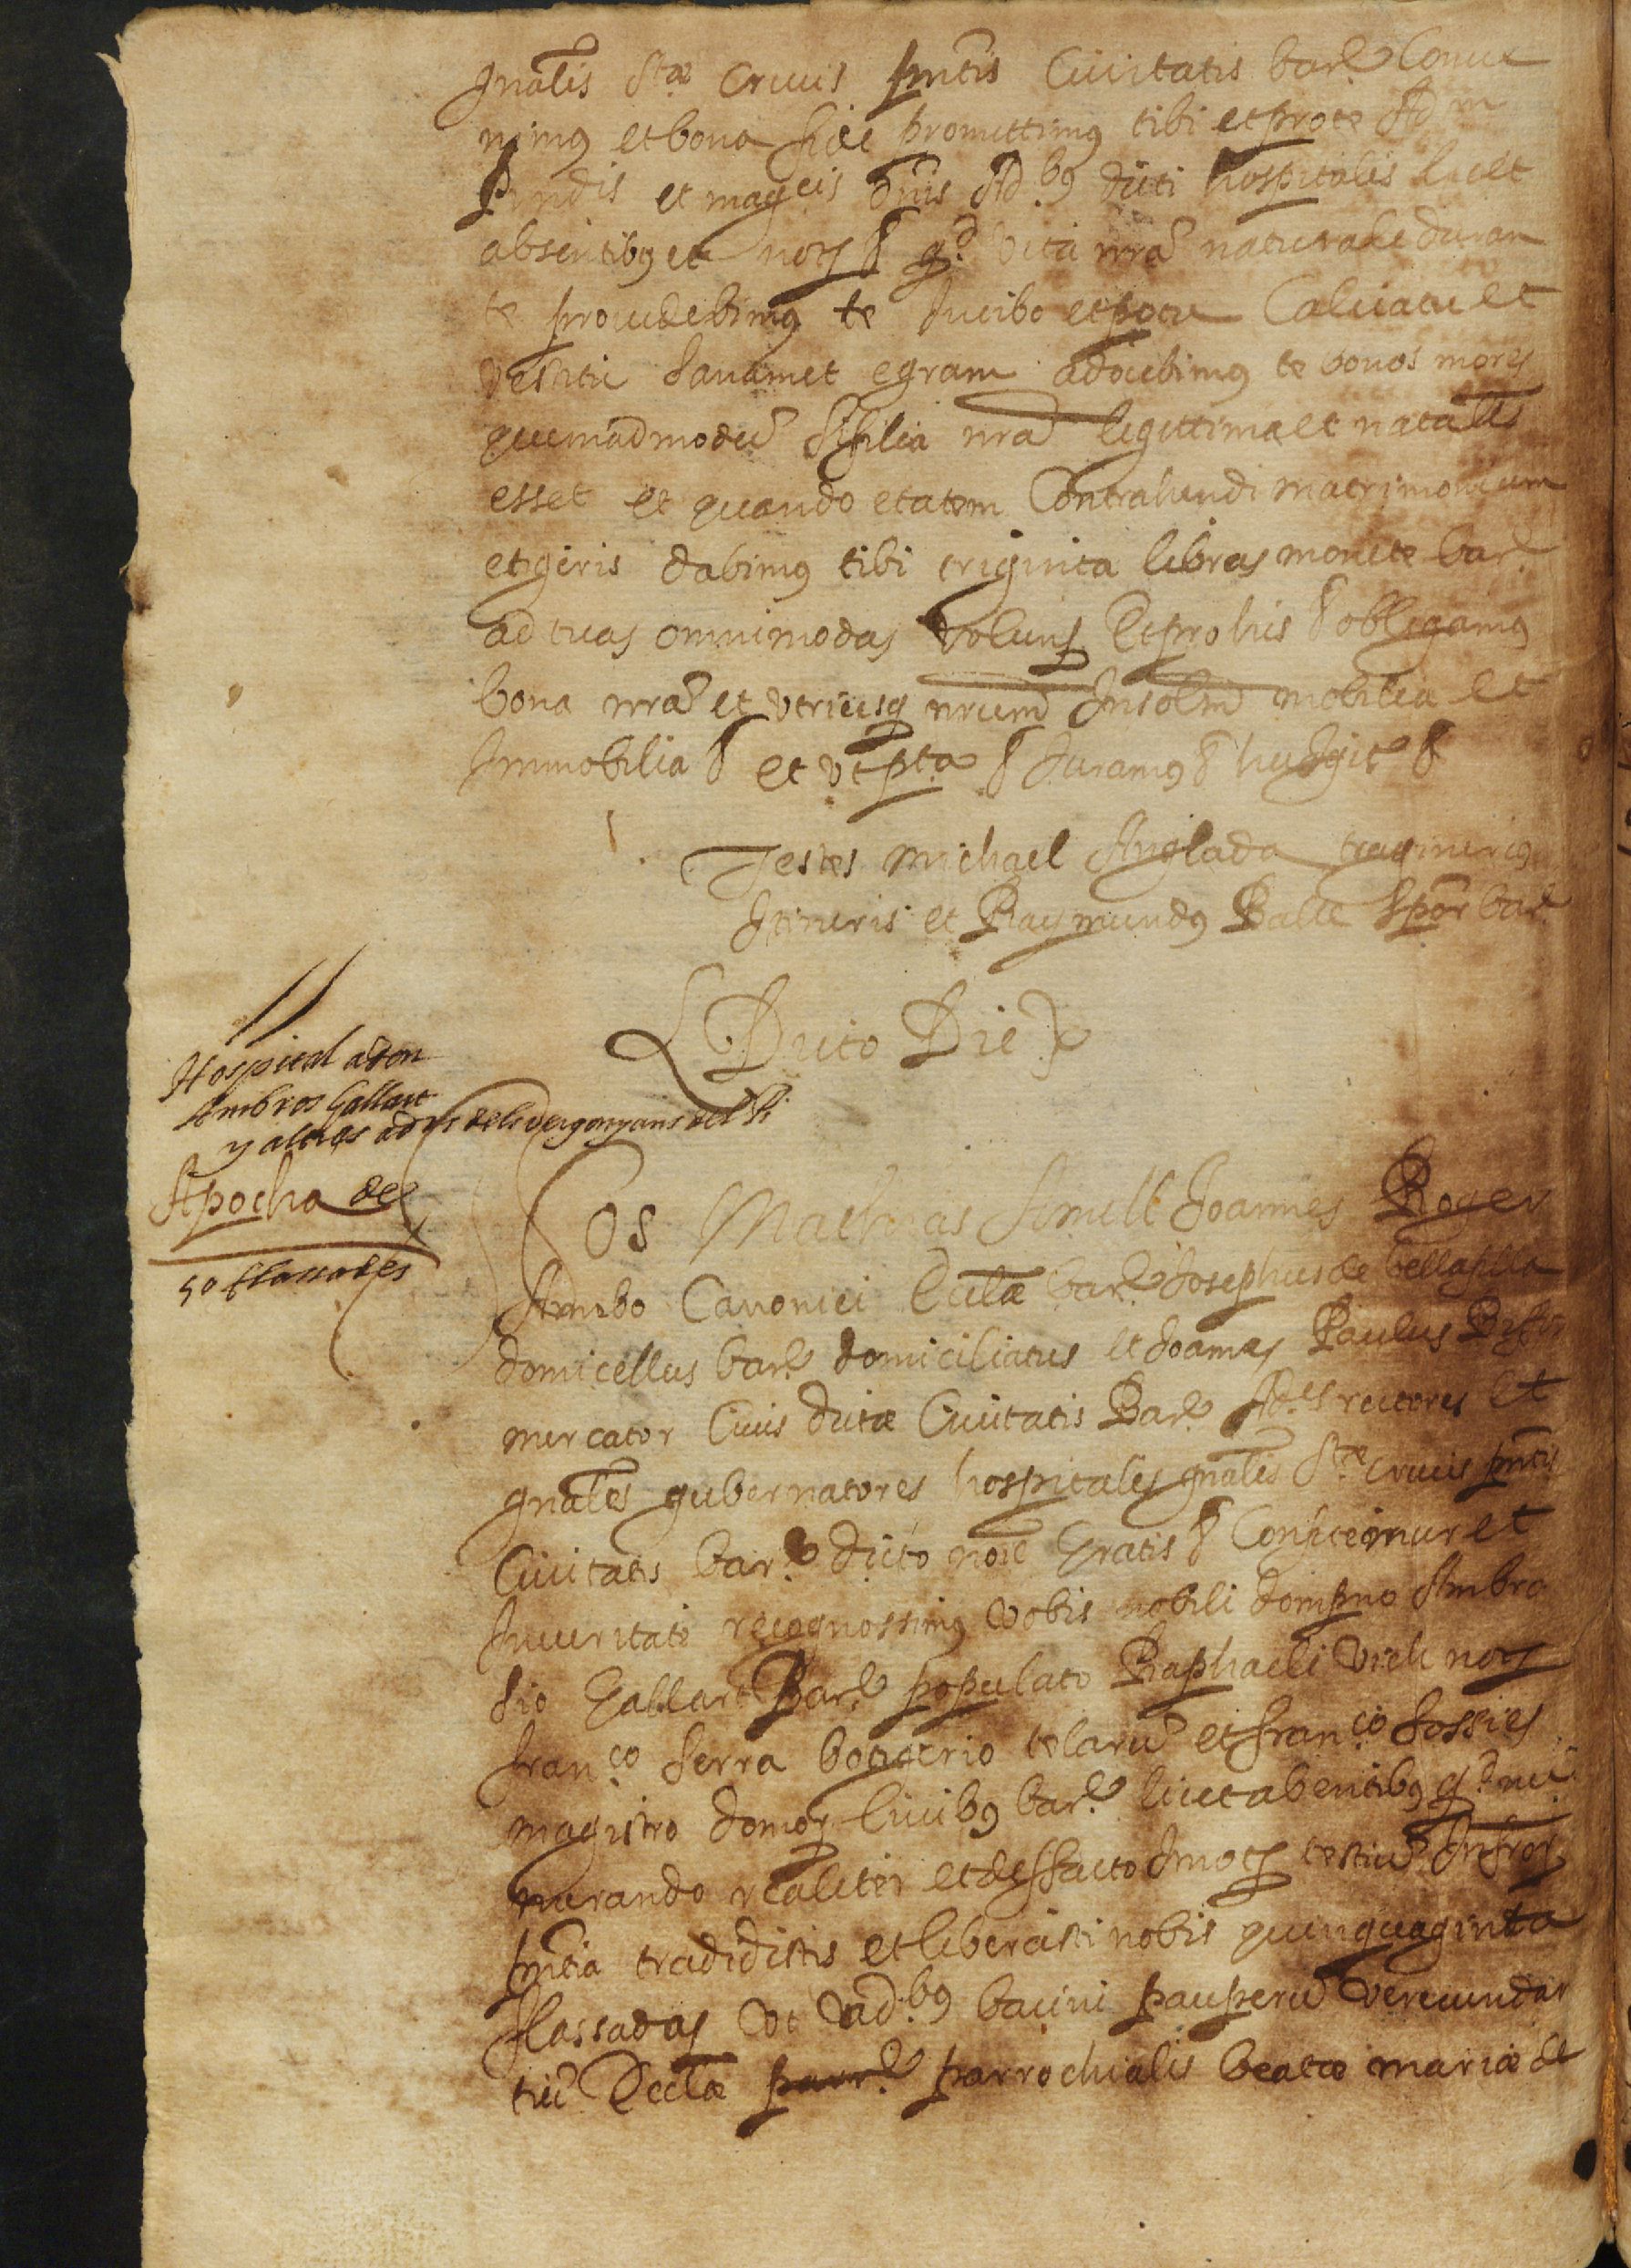 gnalis Stæ Crucis pntis Civitatis bar.e Conve
nimus et bona fide promittimus tibi et pro te Adm
Rndis et magcis dnis Ad.bus dicti hospitalis licet
absentibus et nors & q.d vita nra naturale duran
te providebimus te in cibo et potu Calciatu et
vestitu sanam et egram adocebimus te bonos mores
quemadmodu si filia nra legittima et natalis
esset et quando etatem Contrahendi matrimonium
etigeris dabimus tibi triginta libras monete bar.e
ad tuas omnimodas voluns Et pro his & obligamus
bona nra et utriusq nrum Insolm mobilia et
Immobilia & et ut pta & Juramus & hec igit &
Testes Michael Anglada traginerius
Itineris et Raymundus Balle Spor bar.e
Dicto Die
Hospital a don
Ambros Gallart
y altres adrs dels vergonyans del Pi
Apocha de
50 flassades
Nos Mathias Amell Joannes Roger
Ambo Canonici Ecclæ bar.e Josephus de bellaplla
domicellus bar.e domiciliatus et Joannes Paulus
mercator Civis dictæ Civitatis Bar.e Ad.es rectores et
gnales gubernatores hospitalis gnalis Stæ crucis pntis
Civitatis bar.e dicto noie Gratis & Confitemur et
In veritate recognossimus vobis nobili dompno Ambro
sio Gallart Bar.e populato Raphaeli Vich nors
Fran.co Serra botigerio telaru et Fran.co Fossies
magistro domor Civibus bar.e licet absentibus q.d nu
merando realiter et de facto In nors testiu Infror
pntia tradidistis et liberasti nobis quinquaginta
flassadas ut Ad.bus bacini pauperu verecundan
tiu Ecclæ parr.e parrochialis beatæ mariæ de